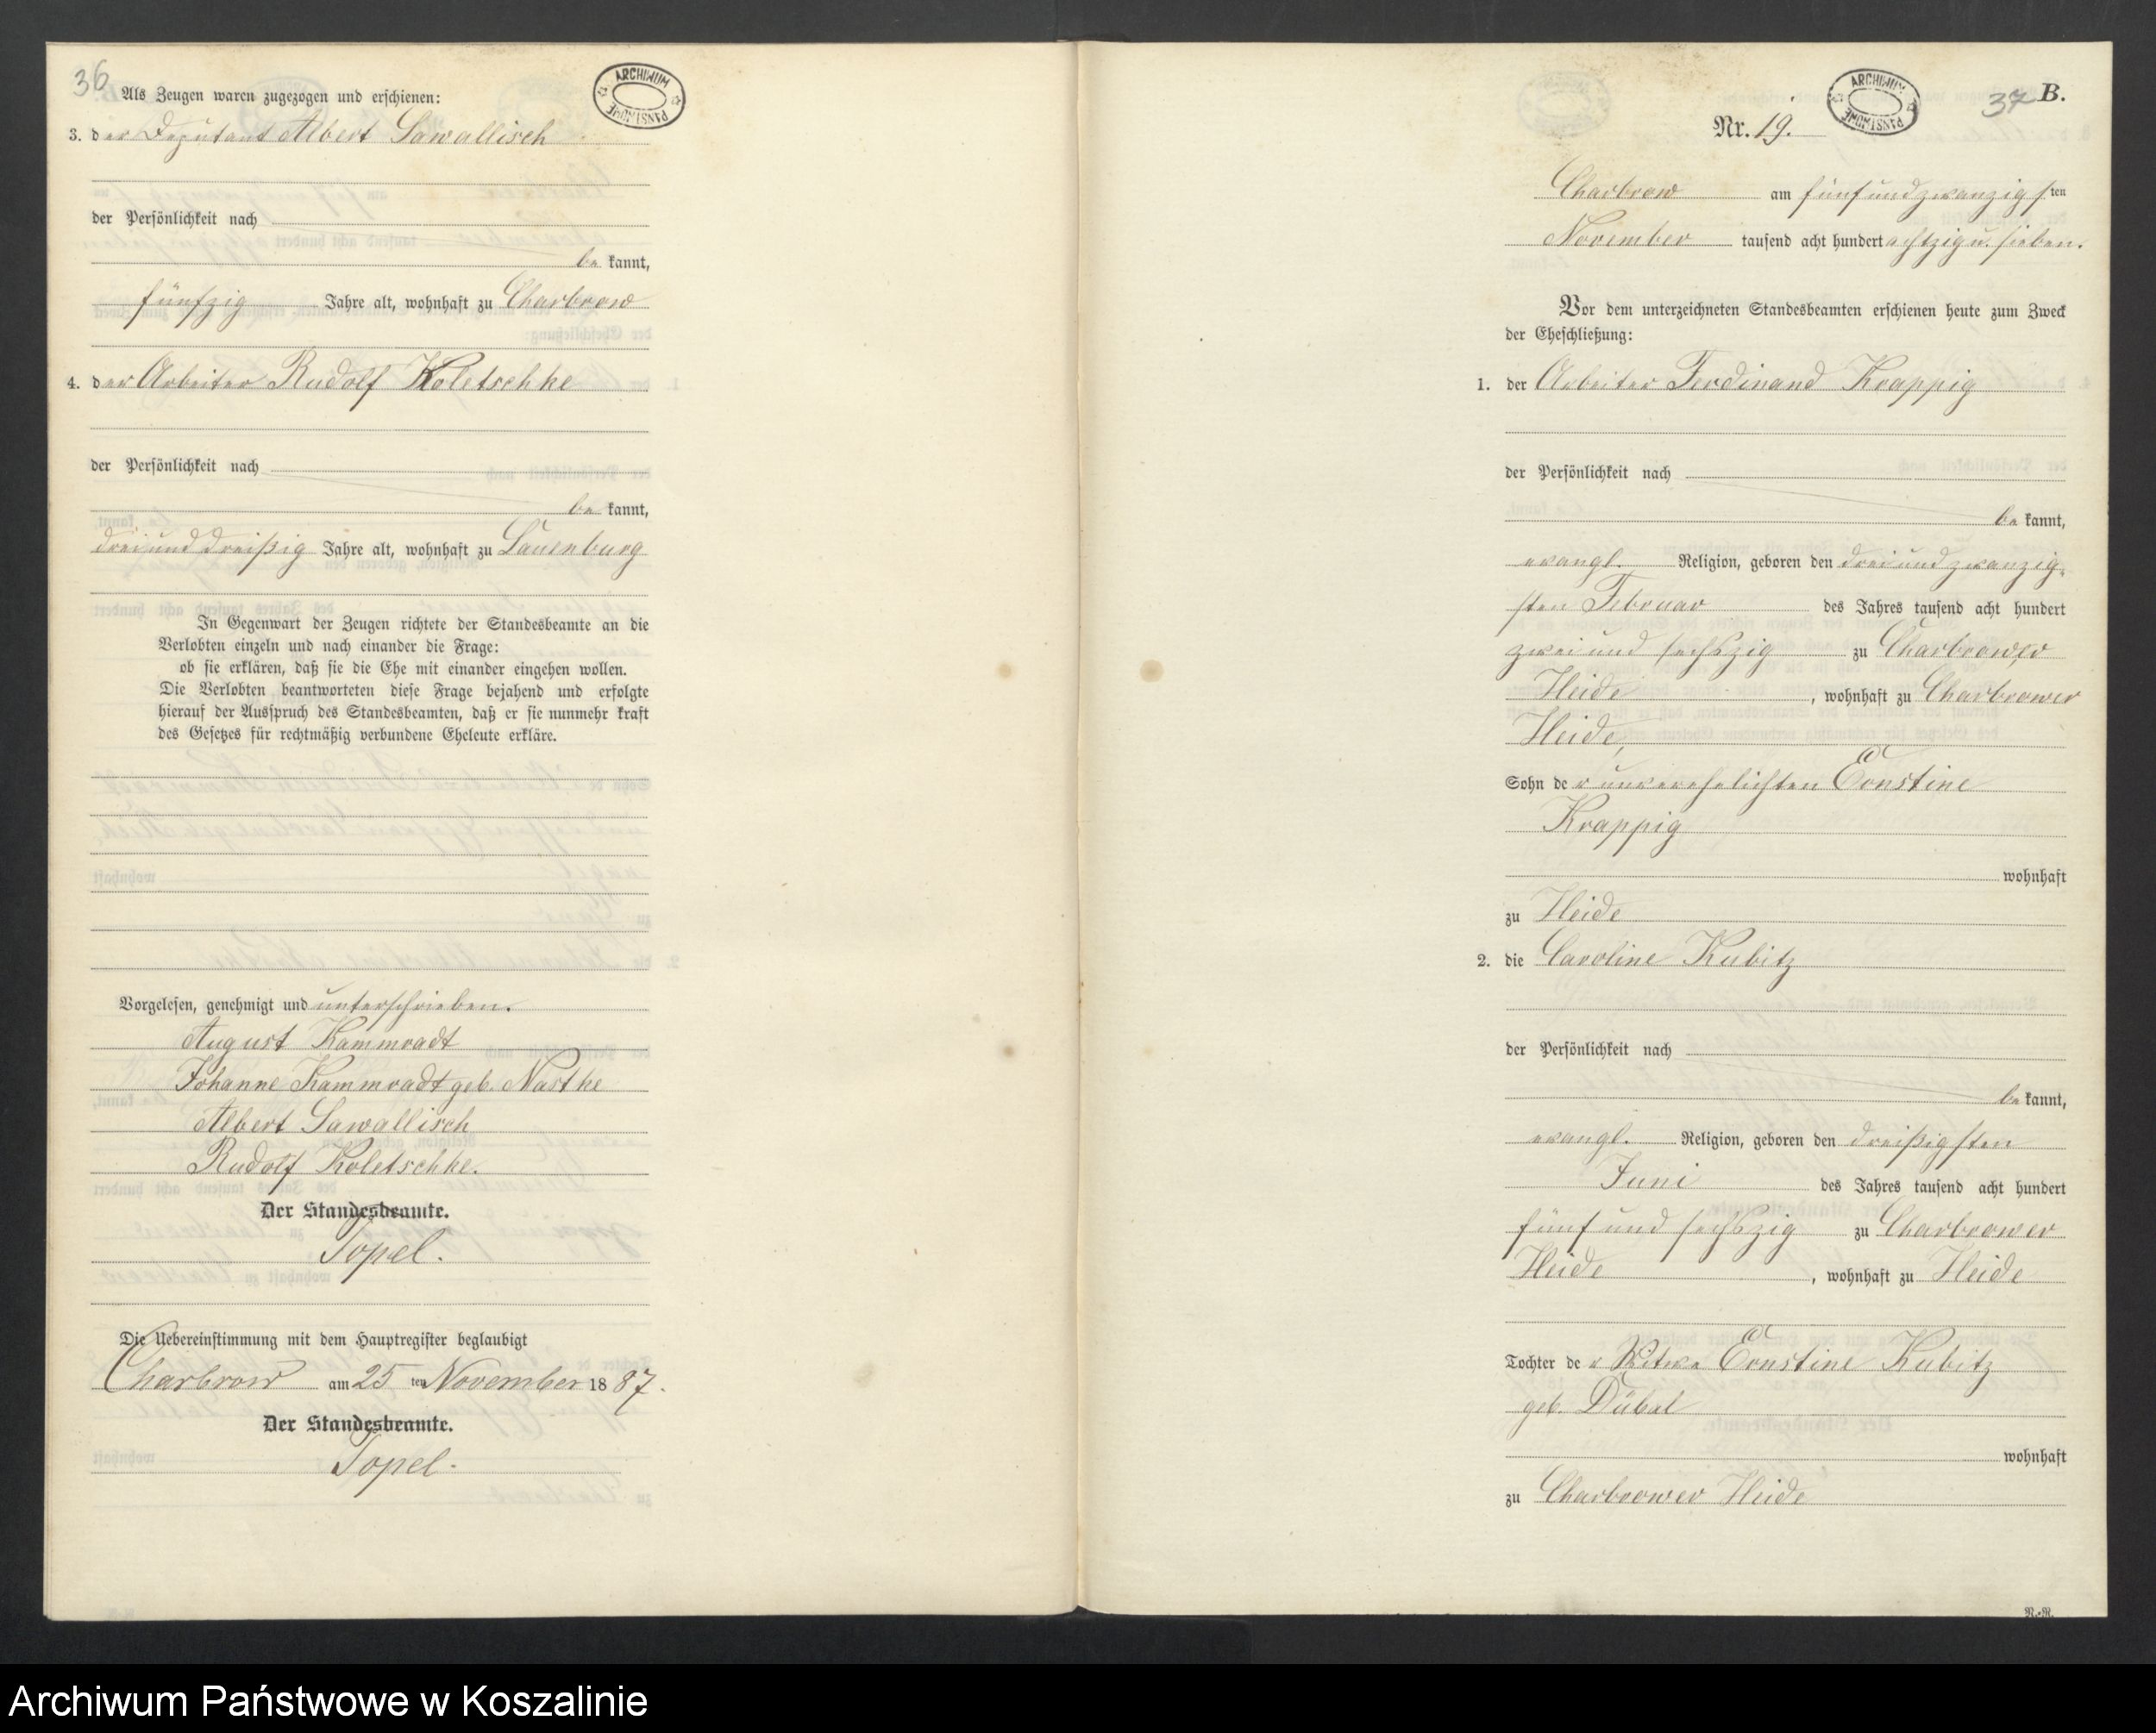 36
ARCHIWUM PAŃSTWOWE
Als Zeugen waren zugezogen und erschienen:
3. der Deputant Albert Sawallisch
der Persönlichkeit nach
bekannt,
fünfzig Jahre alt, wohnhaft zu Charbrow
4. der Arbeiter Rudolf Koletschke
der Persönlichkeit nach
bekannt,
dreiunddreißig Jahre alt, wohnhaft zu Lauenburg
In Gegenwart der Zeugen richtete der Standesbeamte an die
Verlobten einzeln und nach einander die Frage:
ob sie erklären, daß sie die Ehe mit einander eingehen wollen.
Die Verlobten beantworteten diese Frage bejahend und erfolgte
hierauf der Ausspruch des Standesbeamten, daß er sie nunmehr kraft
des Gesetzes für rechtmäßig verbundene Eheleute erkläre.
Vorgelesen, genehmigt und unterschrieben.
August Kammradt
Johanne Kammradt geb. Nasthe
Albert Sawallisch
Rudolf Koletschke.
Der Standesbeamte.
Topel.
Die Uebereinstimmung mit dem Hauptregister beglaubigt
Charbrow am 25 ten November 1887.
Der Standesbeamte.
Topel.
37
B.
ARCHIWUM PAŃSTWOWE
Nr. 19.
Charbrow am fünfundzwanzigsten
November tausend acht hundert achtzig u. sieben.
Vor dem unterzeichneten Standesbeamten erschienen heute zum Zweck
der Eheschließung:
1. der Arbeiter Ferdinand Krappig
der Persönlichkeit nach
bekannt,
evangl. Religion, geboren den dreiundzwanzig-
sten Februar des Jahres tausend acht hundert
zwei und sechszig zu Charbrower
Heide, wohnhaft zu Charbrower
Heide,
Sohn der unverehelichten Ernstine
Krappig
wohnhaft
zu Heide
2. die Caroline Kubitz
der Persönlichkeit nach
bekannt,
evangl. Religion, geboren den dreißigsten
Juni des Jahres tausend acht hundert
fünf und sechszig zu Charbrower
Heide, wohnhaft zu Heide
Tochter der Witwe Ernstine Kubitz
geb. Dübal
wohnhaft
zu Charbrower Heide
R.-R.
Archiwum Państwowe w Koszalinie